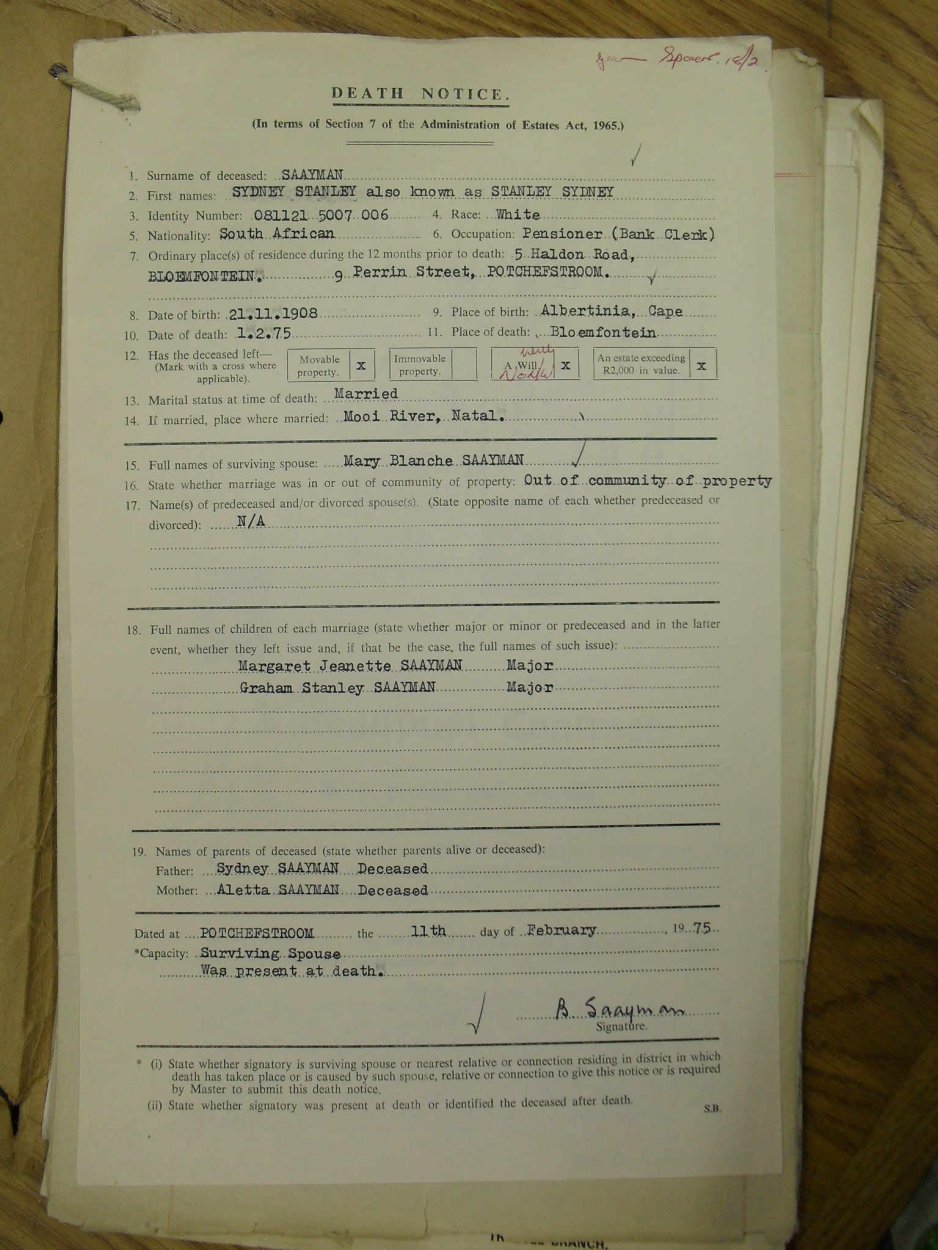 Spoor. 12/2
DEATH NOTICE.
(In terms of Section 7 of the Administration of Estates Act, 1965.)
1. Surname of deceased: SAAYMAN
2. First names: SYDNEY STANLEY also known as STANLEY SYDNEY
3. Identity Number: 081121 5007 006 4. Race: White
5. Nationality: South African 6. Occupation: Pensioner (Bank Clerk)
7. Ordinary place(s) of residence during the 12 months prior to death: 5 Haldon Road,
BLOEMFONTEIN. 9 Perrin Street, POTCHEFSTROOM.
8. Date of birth: 21.11.1908 9. Place of birth: Albertinia, Cape
10. Date of death: 1.2.75 11. Place of death: Bloemfontein
12. Has the deceased left— Movable property. X Immovable property. A Will X An estate exceeding R2,000 in value. X
(Mark with a cross where
applicable).
13. Marital status at time of death: Married
14. If married, place where married: Mooi River, Natal.
15. Full names of surviving spouse: Mary Blanche SAAYMAN
16. State whether marriage was in or out of community of property: Out of community of property
17. Name(s) of predeceased and/or divorced spouse(s). (State opposite name of each whether predeceased or
divorced): N/A
18. Full names of children of each marriage (state whether major or minor or predeceased and in the latter
event, whether they left issue and, if that be the case, the full names of such issue):
Margaret Jeanette SAAYMAN Major
Graham Stanley SAAYMAN Major
19. Names of parents of deceased (state whether parents alive or deceased):
Father: Sydney SAAYMAN Deceased
Mother: Aletta SAAYMAN Deceased
Dated at POTCHEFSTROOM the 11th day of February, 19 75
*Capacity: Surviving Spouse
Was present at death.
B Saayman
Signature.
* (i) State whether signatory is surviving spouse or nearest relative or connection residing in district in which
death has taken place or is caused by such spouse, relative or connection to give this notice or is required
by Master to submit this death notice.
(ii) State whether signatory was present at death or identified the deceased after death.
S.B.
BRANCH.